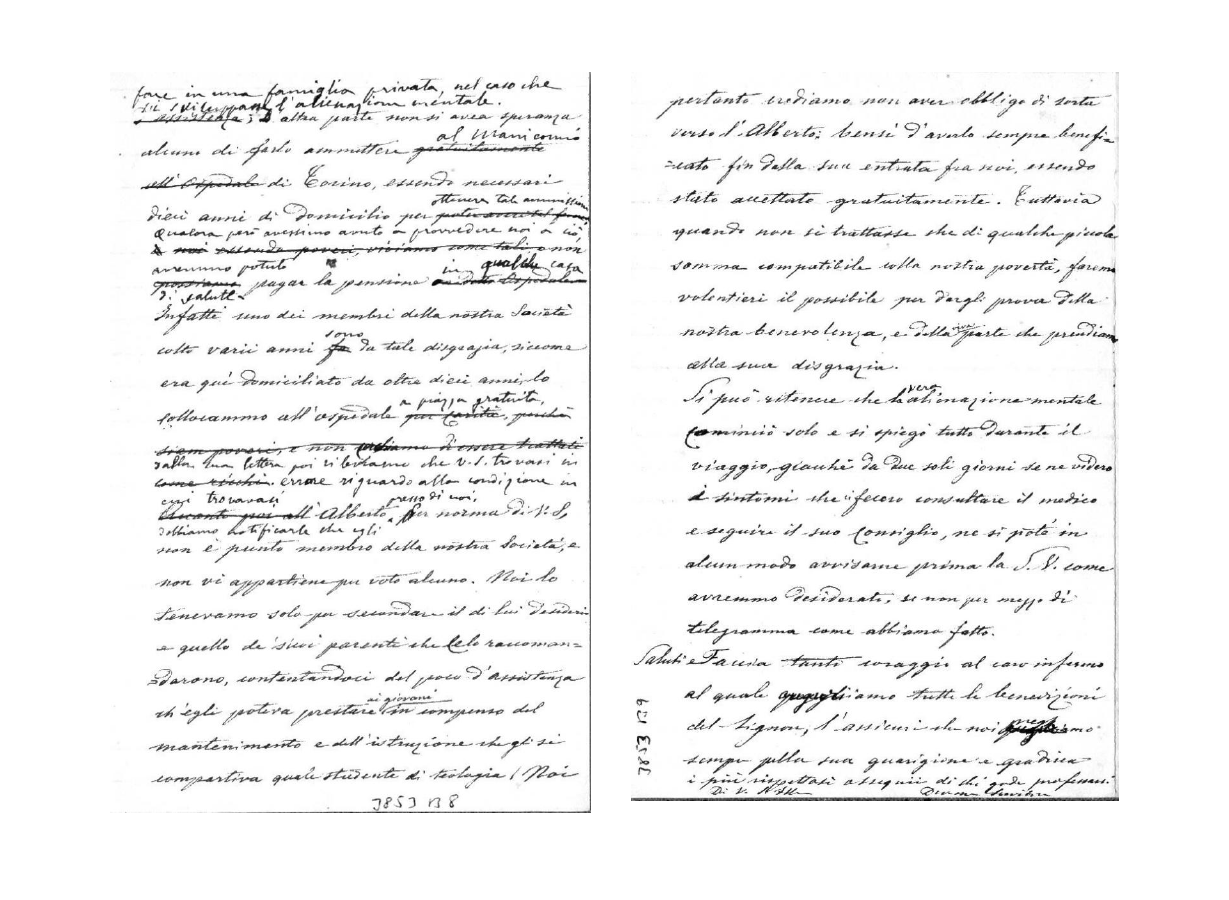 fare in una famiglia privata, nel caso che
si sviluppasse l'alienazione mentale.
s'assistenza; D'altra parte non si avea speranza
al Manicomio
alcuna di farlo ammettere gratuitamente
all'Ospedale di Torino, essendo necessari
ottenere tale ammissione
dieci anni di domicilio per
Qualora però avessimo avuto a provvedere noi a ciò
e noi essendo poveri, viviamo come tali e non
avremmo potuto in qualche casa
possiamo pagar la pensione
di salute.
Infatti uno dei membri della nostra Società
sono
colto varii anni fa da tale disgrazia, siccome
era qui domiciliato da oltre dieci anni, lo
a piazza gratuita,
collocammo all'ospedale per carità, perchè
siam poveri, e non di essere trattati
dalla sua lettera poi rileviamo che V.S. trovasi in
come ricchi. errore riguardo alla condizione in
cui trovavasi presso di noi,
Quanto poi all'Alberto per norma di V.S,
dobbiamo notificarle che egli
non è punto membro della nostra Società, e
non vi appartiene per voto alcuno. Noi lo
tenevamo solo per secondare il di lui desiderio
e quello de' suoi parenti che lo raccoman=
=darono, contentandoci del poco d'assistenza
ai giovani
ch'egli poteva prestare in compenso del
mantenimento e dell'istruzione che gli si
compartiva quale studente di teologia. Noi
J853 B8
pertanto crediamo non aver obbligo di sorta
verso l'Alberto; bensì d'averlo sempre benefi=
=cato fin dalla sua entrata fra noi, essendo
stato accettato gratuitamente. Tuttavia
quando non si trattasse che di qualche piccola
somma compatibile colla nostra povertà, faremo
volentieri il possibile per dargli prova della
nostra benevolenza, e della viva parte che prendiamo
alla sua disgrazia.
vera
Si può ritenere che l'alienazione mentale
cominciò solo e si spiegò tutta durante il
viaggio, giacchè da due soli giorni se ne videro
i sintomi che ci fecero consultare il medico
e seguire il suo consiglio, ne si potè in
alcun modo avvisarne prima la S.V. come
avremmo desiderato, se non per mezzo di
telegramma come abbiamo fatto.
Saluti e Faccia tanti coraggio al caro infermo
al quale preghiamo tutte le benedizioni
del Signore, l'assicuri che noi preghiamo
sempre pella sua guarigione e gradisca
i più rispettosi ossequii di chi gode professarsi
Di V.
J853 B9